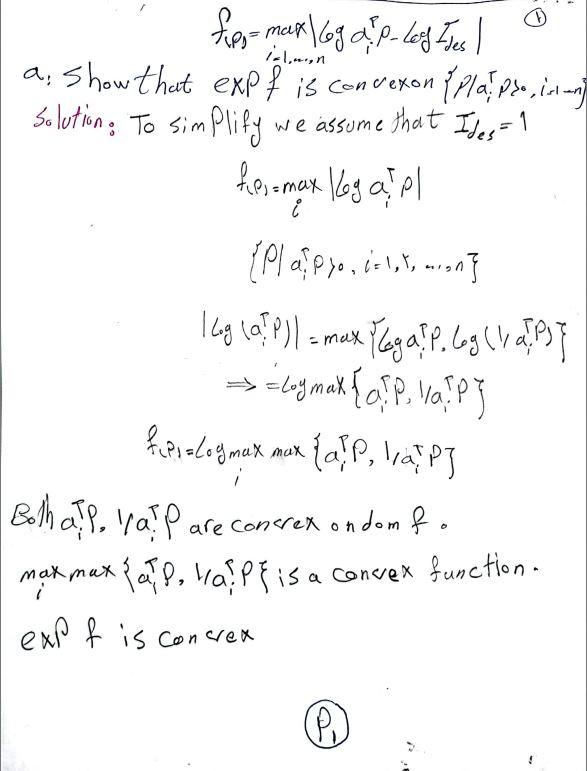 ①
f(p) = max i=1,...,n |log aᵢᵀp - log I_des|
a: show that exp f is convex on {P|aᵢᵀp>0, i=1...n}
Solution: To simplify we assume that I_des = 1
f(p) = max i |log aᵢᵀp|
{P| aᵢᵀp>0, i=1,۲, ..., n}
|log (aᵢᵀp)| = max {log aᵢᵀp, log (1/aᵢᵀp)}
⇒ = log max {aᵢᵀp, 1/aᵢᵀp}
f(p) = log max i max {aᵢᵀp, 1/aᵢᵀp}
Both aᵢᵀp, 1/aᵢᵀp are convex on dom f.
max i max {aᵢᵀp, 1/aᵢᵀp} is a convex function.
exp f is convex
P₁